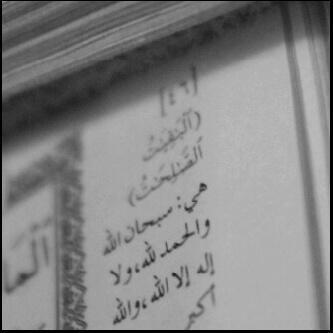 [٤٦]
﴿ٱلْبَـٰقِيَـٰتُ
ٱلصَّـٰلِحَـٰتُ﴾
هي: سبحان الله
والحمد لله، ولا
إله إلا الله، والله
أكبر